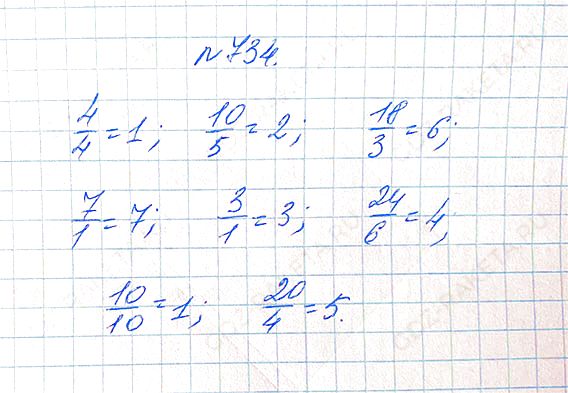 № 734.
4/4 = 1; 10/5 = 2; 18/3 = 6;
7/1 = 7; 3/1 = 3; 24/6 = 4;
10/10 = 1; 20/4 = 5.